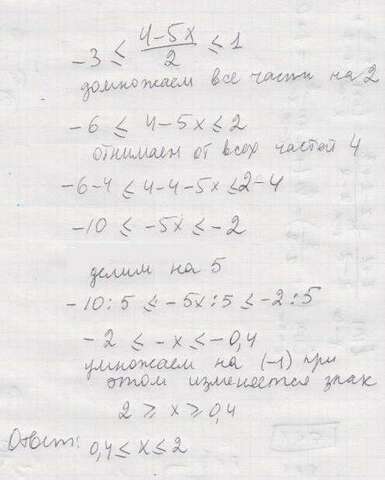 -3 ≤ (4-5x)/2 ≤ 1
домножаем все части на 2
-6 ≤ 4-5x ≤ 2
отнимаем от всех частей 4
-6-4 ≤ 4-4-5x ≤ 2-4
-10 ≤ -5x ≤ -2
делим на 5
-10:5 ≤ -5x:5 ≤ -2:5
-2 ≤ -x ≤ -0,4
умножаем на (-1) при
этом изменяется знак
2 ≥ x ≥ 0,4
Ответ: 0,4 ≤ x ≤ 2